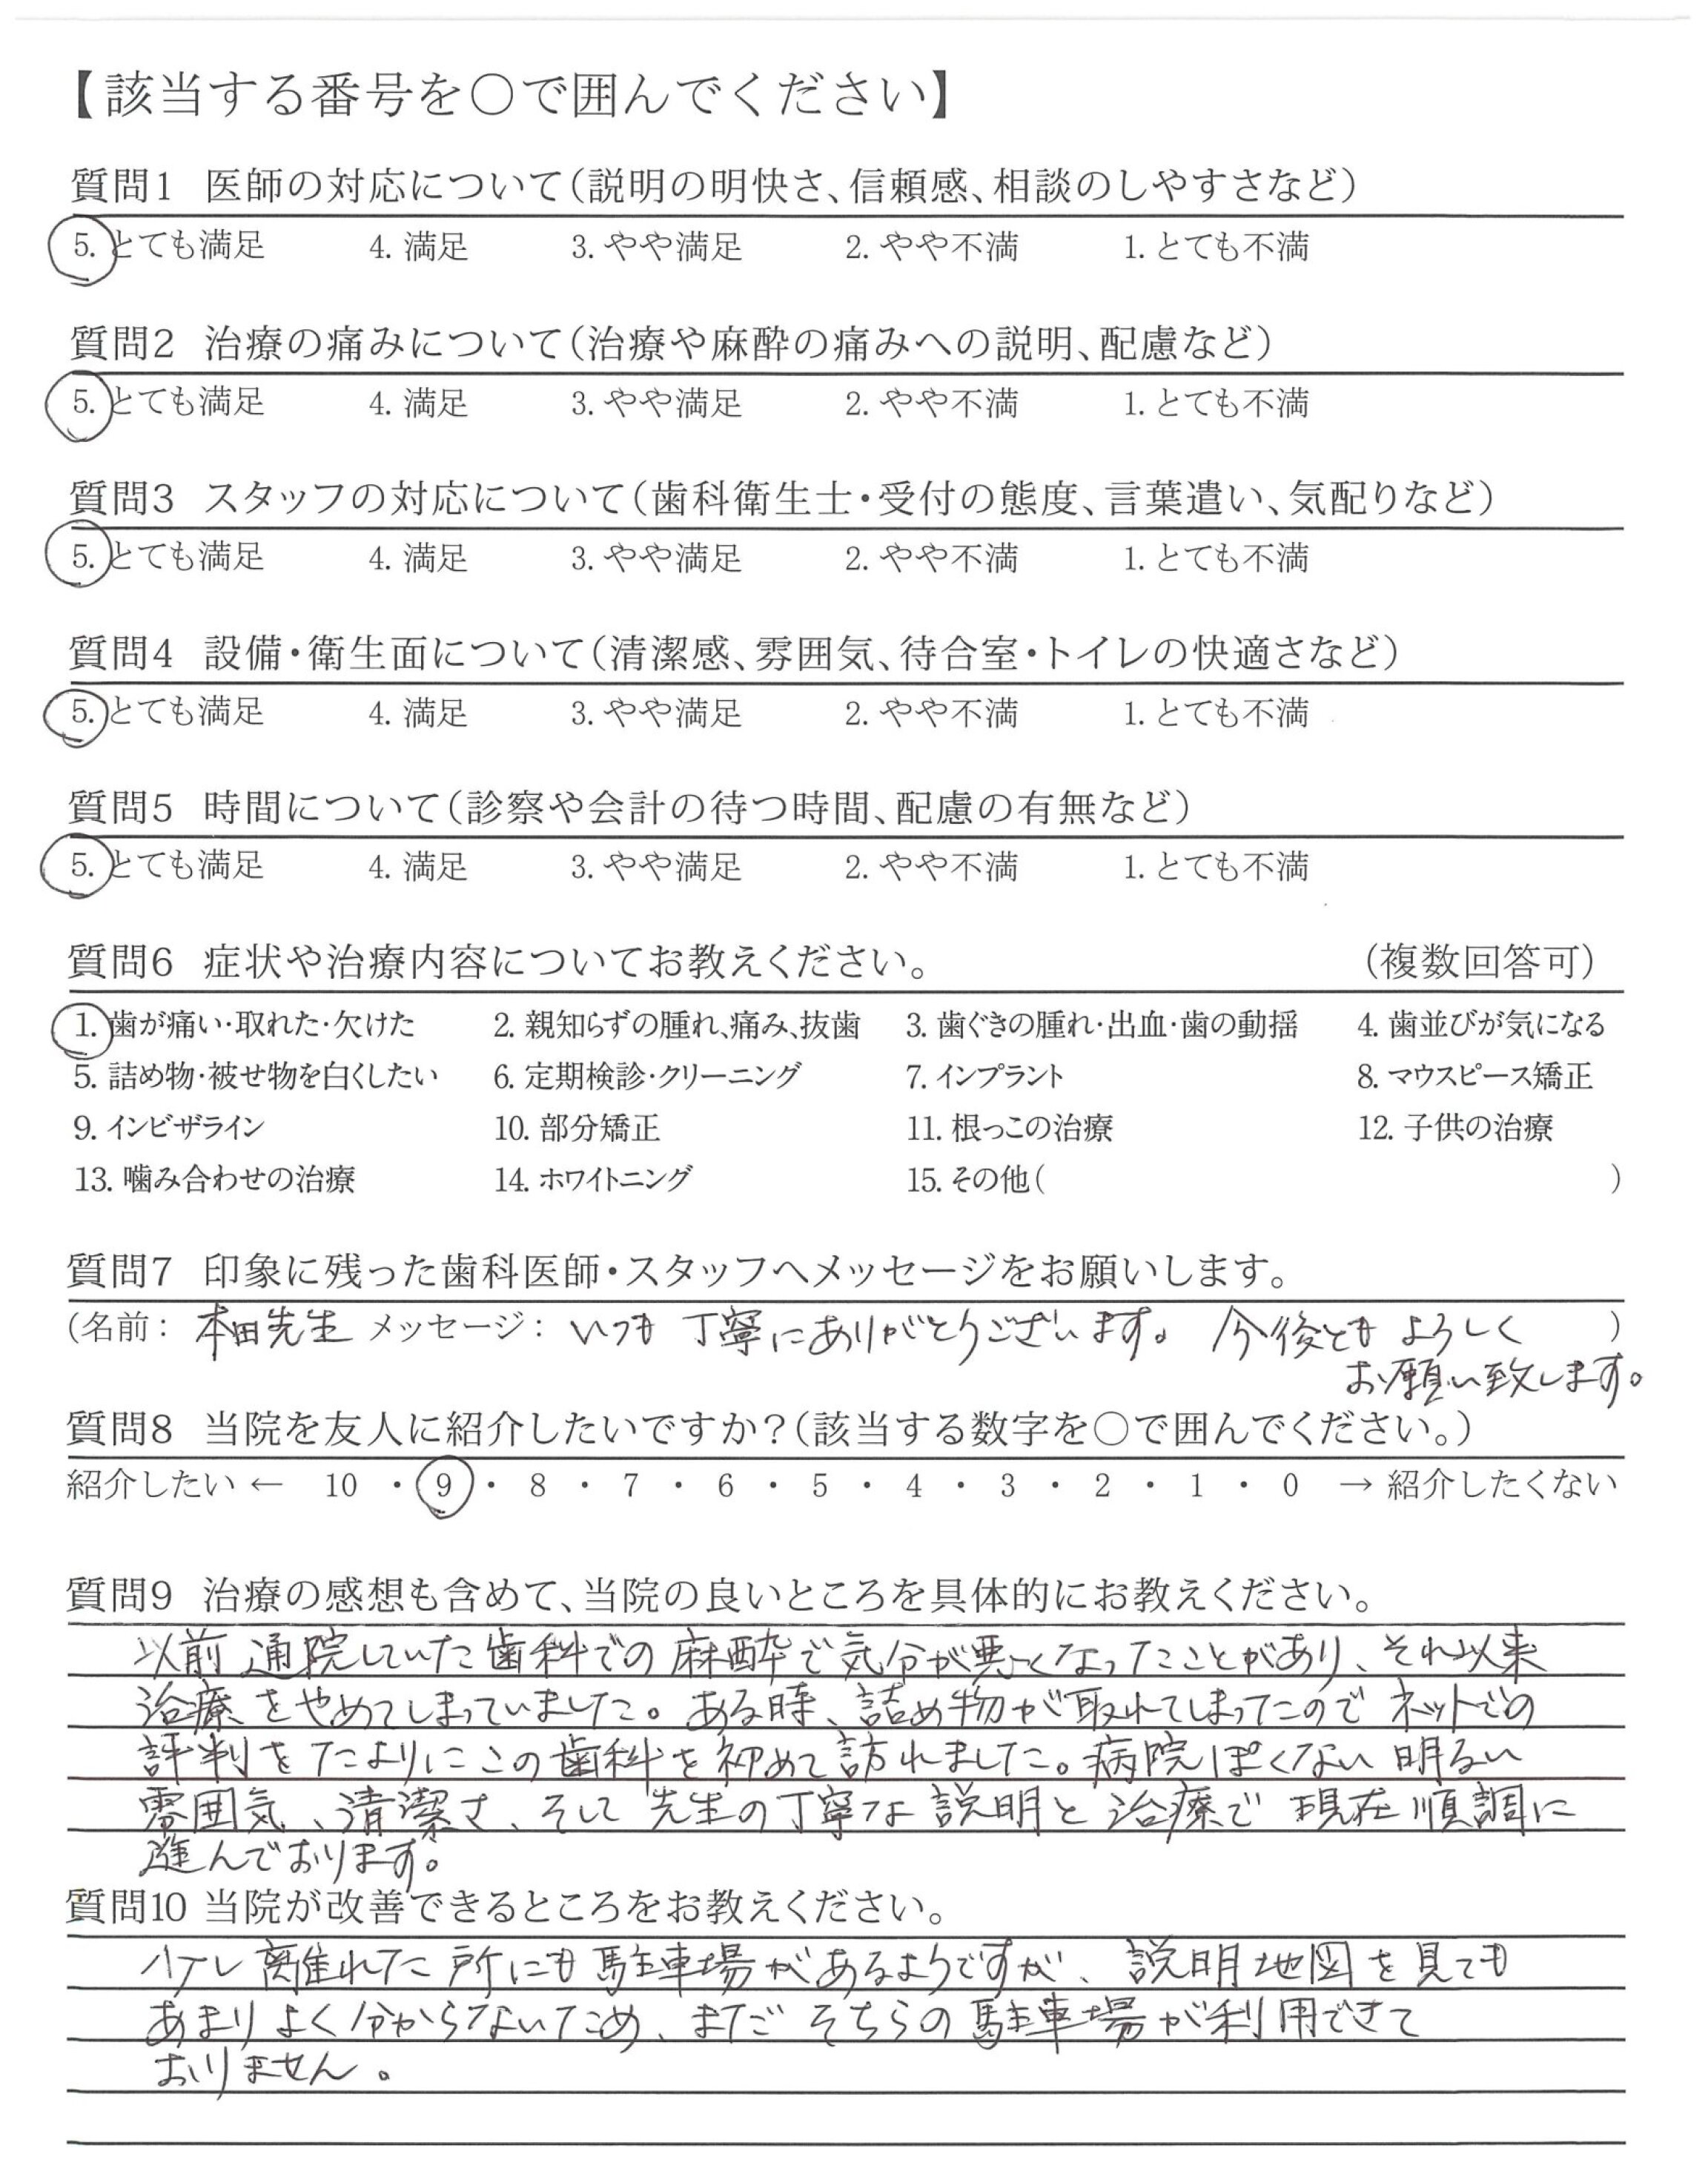 【該当する番号を○で囲んでください】
質問1 医師の対応について(説明の明快さ、信頼感、相談のしやすさなど)
5. とても満足 4. 満足 3. やや満足 2. やや不満 1. とても不満
質問2 治療の痛みについて(治療や麻酔の痛みへの説明、配慮など)
5. とても満足 4. 満足 3. やや満足 2. やや不満 1. とても不満
質問3 スタッフの対応について(歯科衛生士・受付の態度、言葉遣い、気配りなど)
5. とても満足 4. 満足 3. やや満足 2. やや不満 1. とても不満
質問4 設備・衛生面について(清潔感、雰囲気、待合室・トイレの快適さなど)
5. とても満足 4. 満足 3. やや満足 2. やや不満 1. とても不満
質問5 時間について(診察や会計の待つ時間、配慮の有無など)
5. とても満足 4. 満足 3. やや満足 2. やや不満 1. とても不満
質問6 症状や治療内容についてお教えください。 (複数回答可)
1. 歯が痛い・取れた・欠けた 2. 親知らずの腫れ、痛み、抜歯 3. 歯ぐきの腫れ・出血・歯の動揺 4. 歯並びが気になる
5. 詰め物・被せ物を白くしたい 6. 定期検診・クリーニング 7. インプラント 8. マウスピース矯正
9. インビザライン 10. 部分矯正 11. 根っこの治療 12. 子供の治療
13. 噛み合わせの治療 14. ホワイトニング 15. その他( )
質問7 印象に残った歯科医師・スタッフへメッセージをお願いします。
(名前: 本田先生 メッセージ: いつも 丁寧にありがとうございます。 今後とも よろしく )
お願い致します。
質問8 当院を友人に紹介したいですか?(該当する数字を○で囲んでください。)
紹介したい ← 10 ・ 9 ・ 8 ・ 7 ・ 6 ・ 5 ・ 4 ・ 3 ・ 2 ・ 1 ・ 0 → 紹介したくない
質問9 治療の感想も含めて、当院の良いところを具体的にお教えください。
以前 通院していた歯科での麻酔で気分が悪くなったことがあり、それ以来
治療をやめてしまっていました。ある時、詰め物が取れてしまったので ネットでの
評判をたよりにこの歯科を初めて訪れました。病院ぽくない明るい
雰囲気、清潔さ、そして先生の丁寧な説明と治療で 現在順調に
進んでおります。
質問10 当院が改善できるところをお教えください。
少し離れた所にも駐車場があるようですが、説明地図を見ても
あまりよく分からないため、まだ そちらの駐車場が利用できて
おりません。